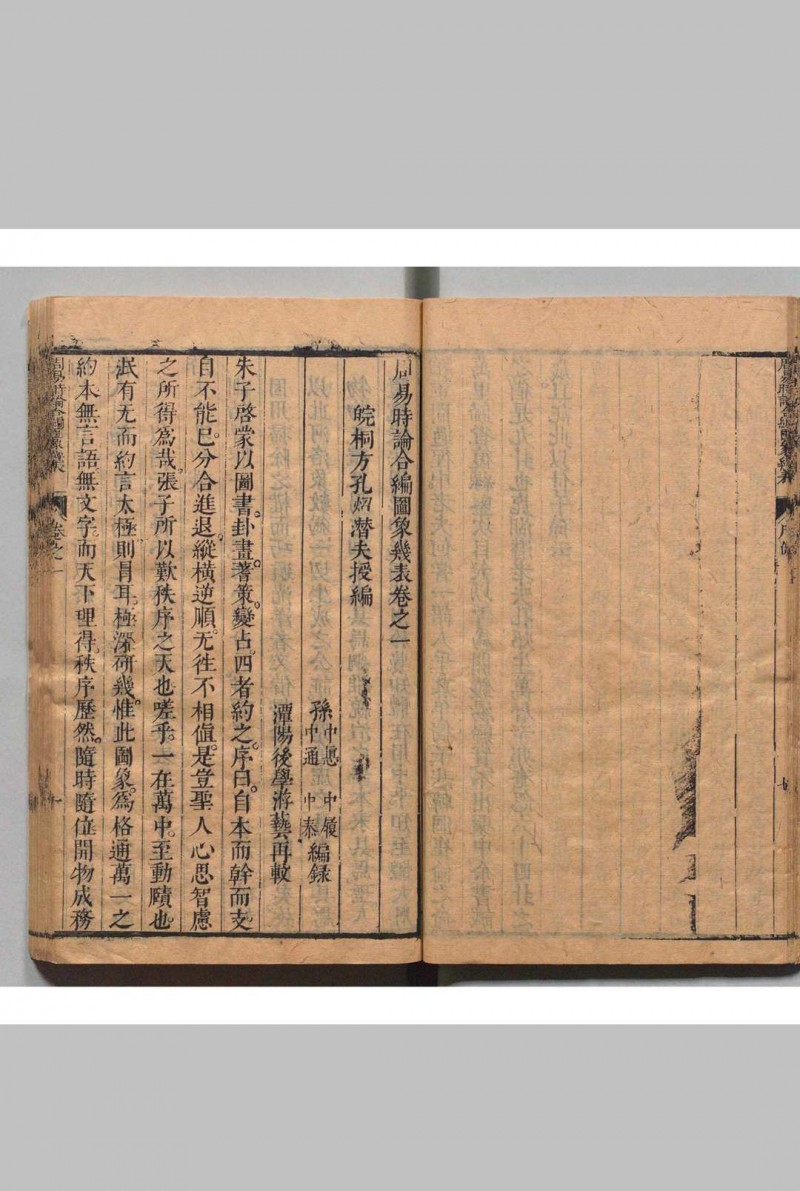 周易時論合編圖象幾表卷之一
皖桐方孔炤潛夫授編
孫中德 中通 中履 中泰編録
潭陽後學游藝再較
朱子啓蒙以圖書卦畫蓍策變占四者約之序曰自本而幹而支
自不能已分合進退縱橫逆順无徃不相值是豈聖人心思智慮
之所得爲哉張子所以歎秩序之天也嗟乎一在萬中至動賾也
泯有无而約言太極則冒耳極深研幾惟此圖象爲格通萬一之
約本無言語無文字而天下理得秩序歷然隨時隨位開物成務
周易時論合編圖象幾表
卷之一
一